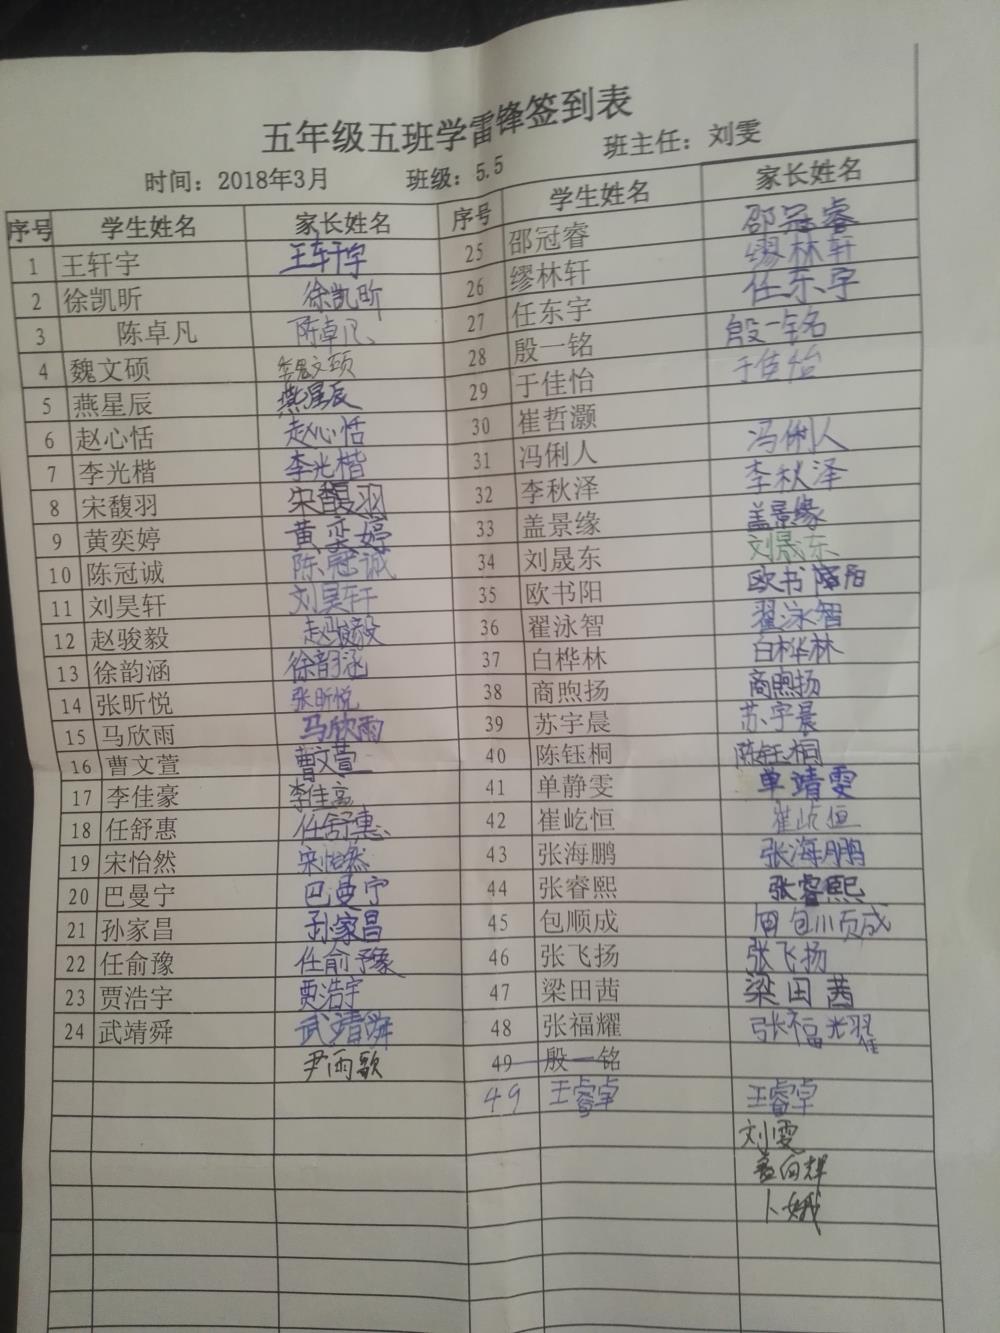 五年级五班学雷锋签到表
时间：2018年3月 班级：5.5 班主任：刘雯
序号 学生姓名 家长姓名 序号 学生姓名 家长姓名
1 王轩宇 王轩宇 25 邵冠睿 邵冠睿
2 徐凯昕 徐凯昕 26 缪林轩 缪林轩
3 陈卓凡 陈卓凡 27 任东宇 任东宇
4 魏文硕 魏文硕 28 殷一铭 殷一铭
5 燕星辰 燕星辰 29 于佳怡 于佳怡
6 赵心恬 赵心恬 30 崔哲灏
7 李光楷 李光楷 31 冯俐人 冯俐人
8 宋馥羽 宋馥羽 32 李秋泽 李秋泽
9 黄奕婷 黄奕婷 33 盖景缘 盖景缘
10 陈冠诚 陈冠诚 34 刘晟东 刘晟东
11 刘昊轩 刘昊轩 35 欧书阳 欧书阳
12 赵骏毅 赵骏毅 36 翟泳智 翟泳智
13 徐韵涵 徐韵涵 37 白桦林 白桦林
14 张昕悦 张昕悦 38 商煦扬 商煦扬
15 马欣雨 马欣雨 39 苏宇晨 苏宇晨
16 曹文萱 曹文萱 40 陈钰桐 陈钰桐
17 李佳豪 李佳豪 41 单静雯 单靖雯
18 任舒惠 任舒惠 42 崔屹恒 崔屹恒
19 宋怡然 宋怡然 43 张海鹏 张海鹏
20 巴曼宁 巴曼宁 44 张睿熙 张睿熙
21 孙家昌 孙家昌 45 包顺成 包顺成
22 任俞豫 任俞豫 46 张飞扬 张飞扬
23 贾浩宇 贾浩宇 47 梁田茜 梁田茜
24 武靖舜 武靖舜 48 张福耀 张福耀
尹雨歌 49 殷一铭
49 王睿卓 王睿卓
刘雯
卜娥